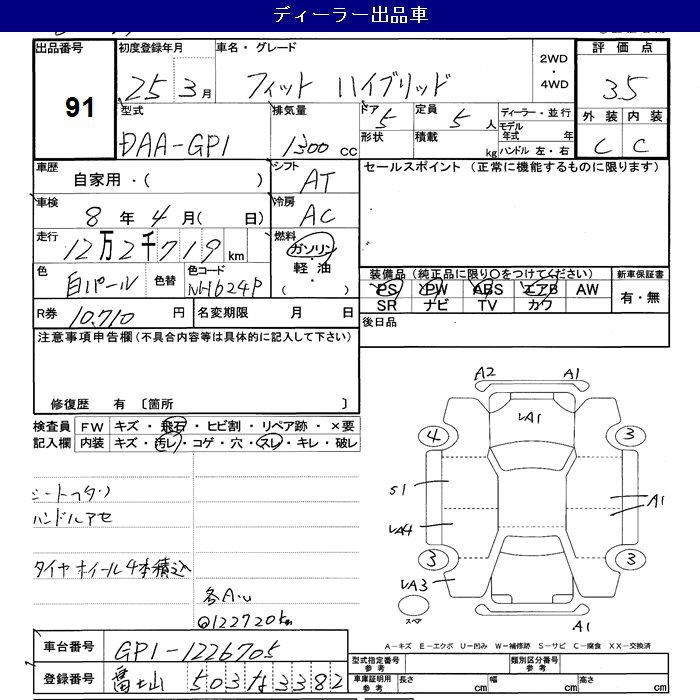 ディーラー出品車
出品番号 91
初度登録年月 25 3月
車名・グレード フィット ハイブリッド
2WD ・ 4WD
評価点 3.5
外装 C 内装 C
型式 DAA-GP1
排気量 1300 cc
ドア 5 形状
定員 5人 積載 kg
ディーラー・並行
モデル年式 年
ハンドル 左・右
車歴 自家用・( )
シフト AT
セールスポイント (正常に機能するものに限ります)
車検 8年 4月( 日)
冷房 AC
走行 12万2千719 km
燃料 ガソリン・軽油・( )
色 白パール 色替 色コード NH624P
装備品 (純正品に限り○をつけてください)
PS PW ABS エアB AW
SR ナビ TV カワ
新車保証書 有・無
R券 10,710円 名変期限 月 日
後日品
注意事項申告欄 (不具合内容等は具体的に記入して下さい)
修復歴 有 〔箇所 〕
検査員記入欄
FW キズ・飛石・ヒビ割・リペア跡・×要
内装 キズ・汚レ・コゲ・穴・スレ・キレ・破レ
ハンドルアセ
タイヤホイール4本積込
@122720km
A2 A1
VA1
4 3
S1
A1
VA4
3 3
VA3
スペア
A1
A-キズ E-エクボ U-凹み W-補修跡 S-サビ C-腐食 XX-交換済
車台番号 GP1-1226705
登録番号 富士山 503 な 3382
型式指定番号 参考 類別区分番号 参考
車庫証明用 参考 長さ cm 幅 cm 高さ cm